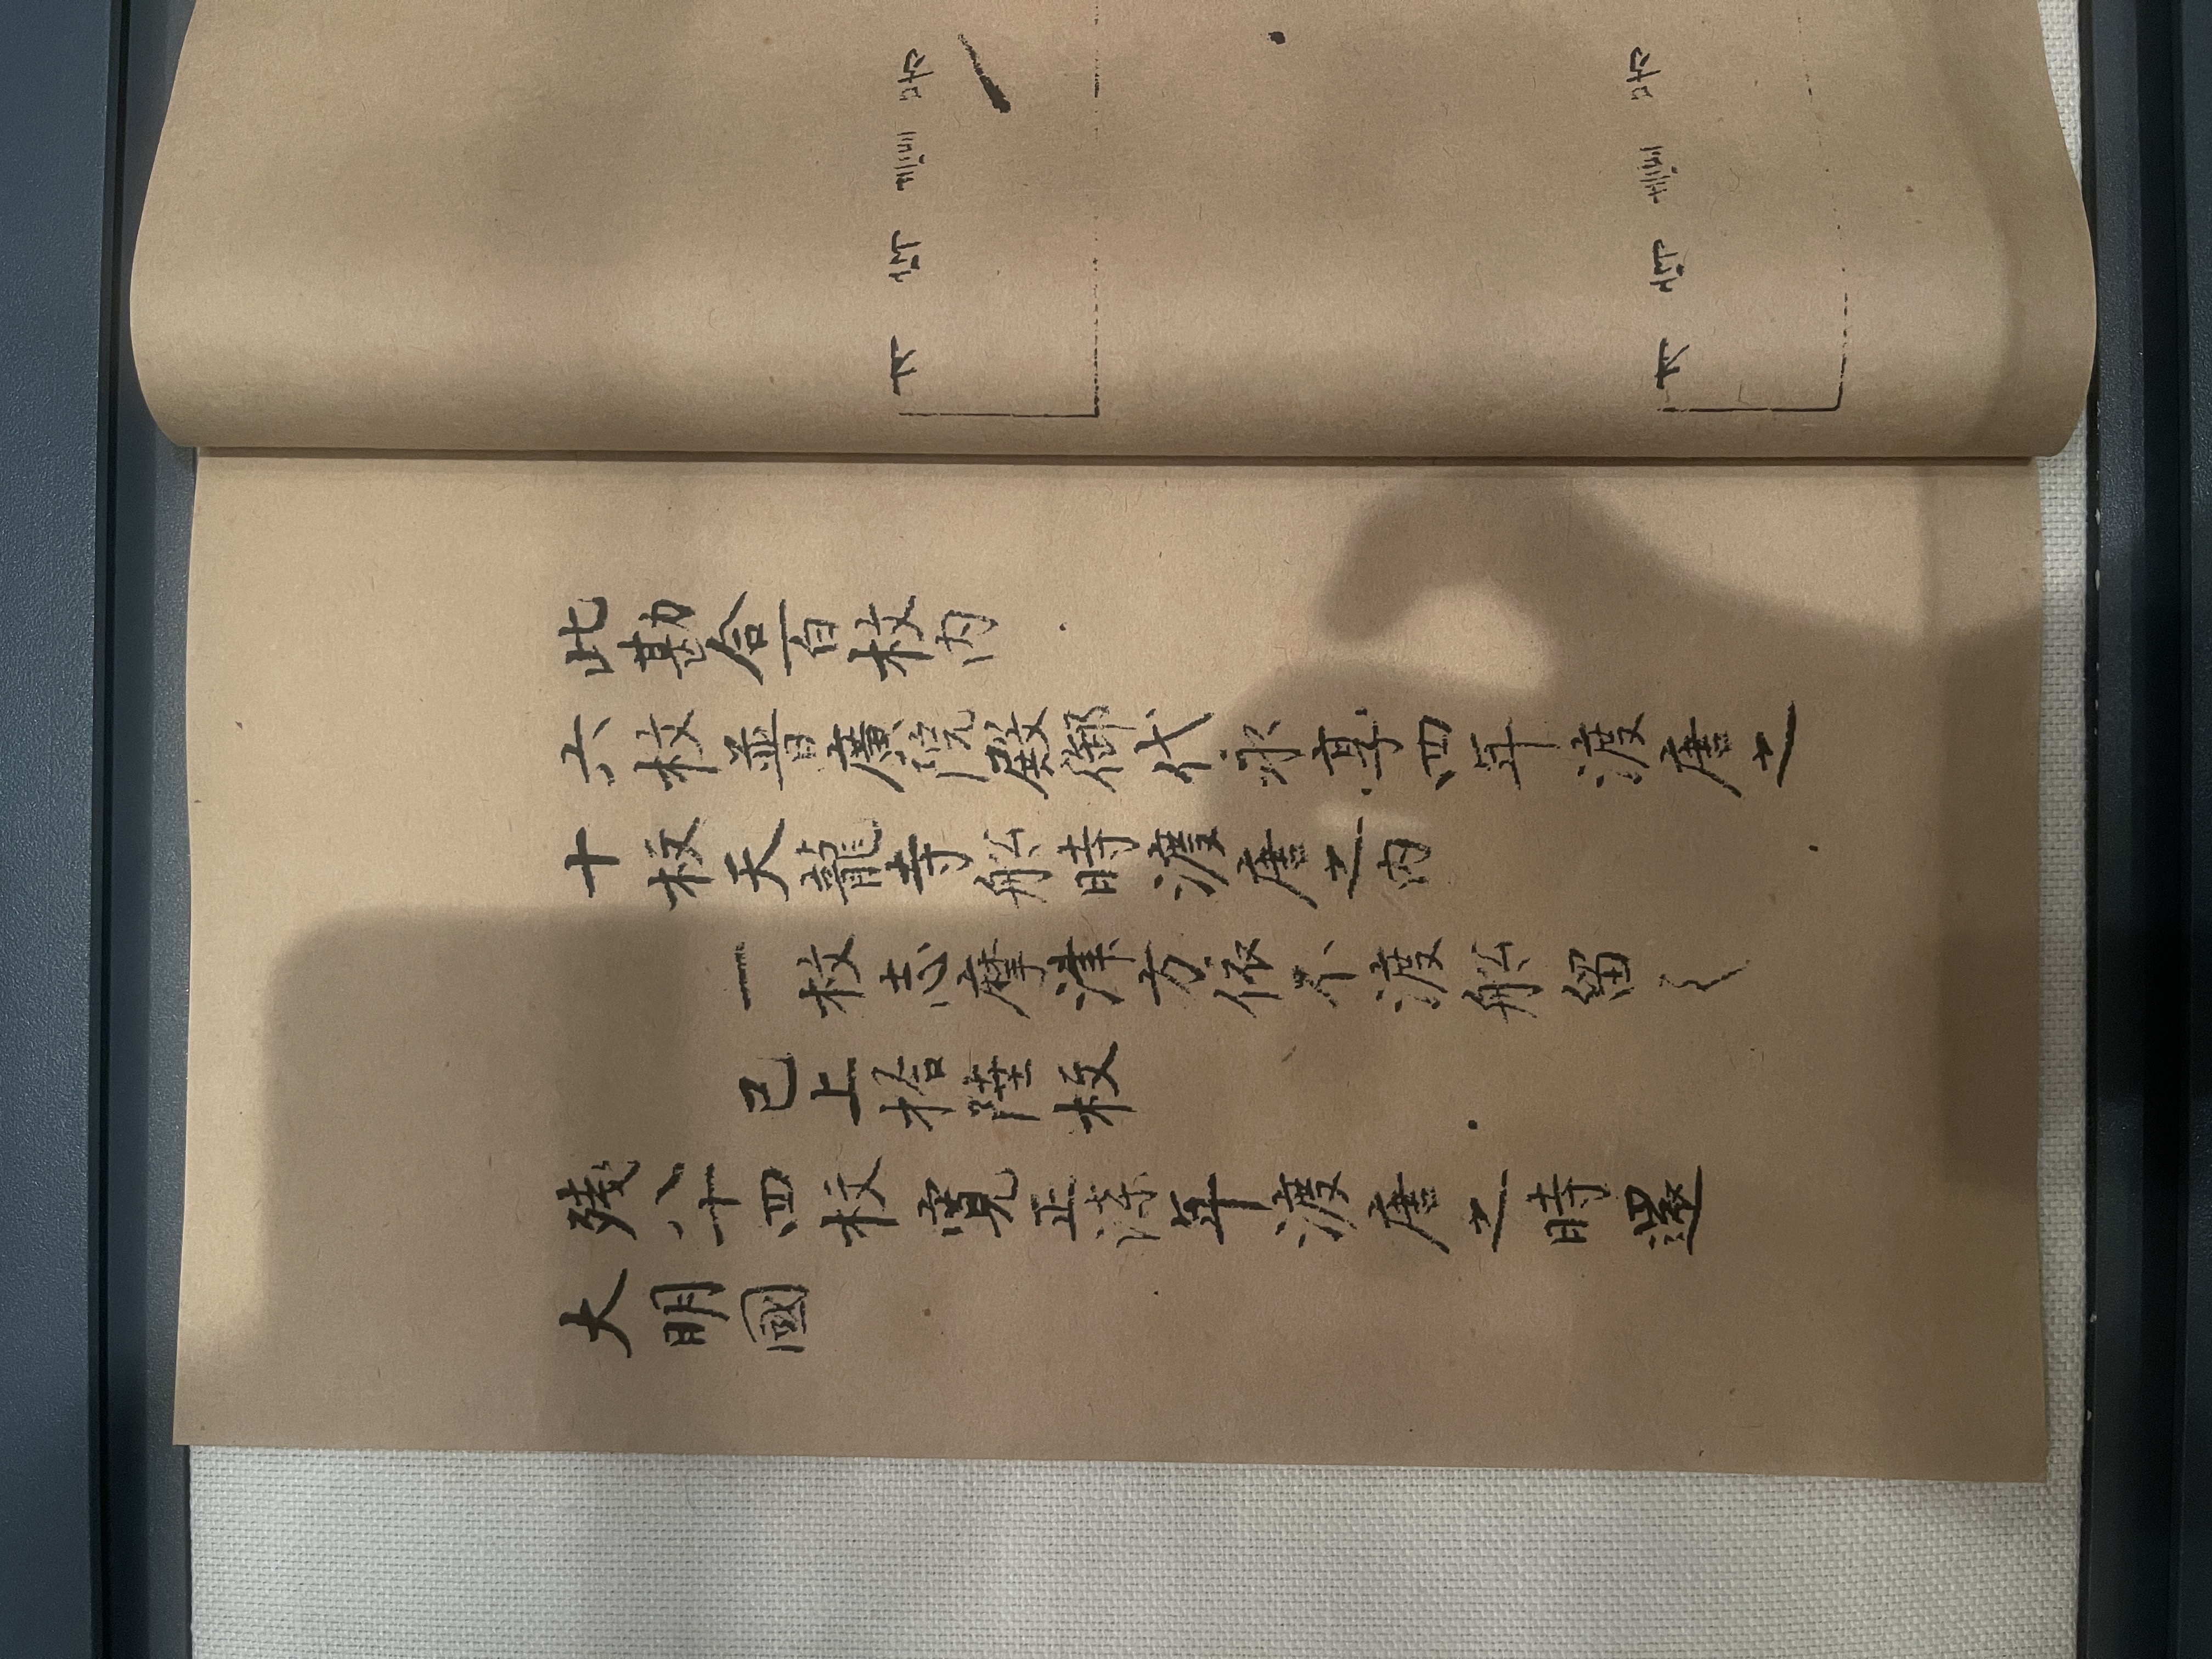 本字壹号
本字壹号
此勘合百枚内
六枚普廣院殿御代永享四年渡唐之
十枚天龍寺船時渡唐之内
一枚志摩津方依不渡船留之
已上拾陸枚
残八十四枚寛正柒年渡唐之時還
大明國